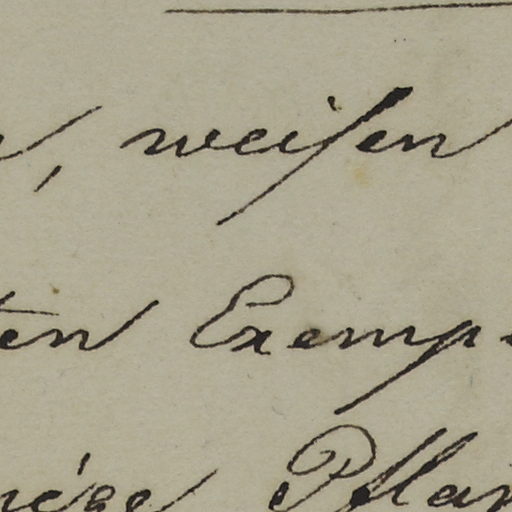 , weisen
ten Exemp
Pflan